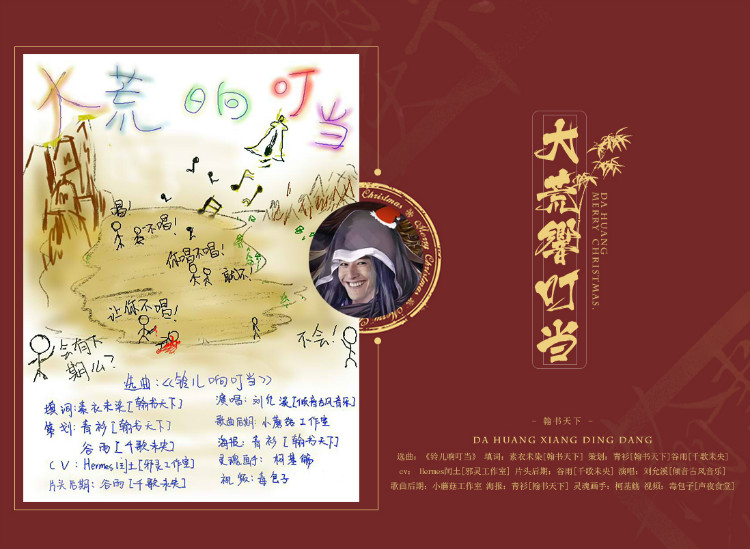 大荒响叮当
唱!
不唱!
你唱不唱!
就不!
让你不唱!
会有下
期么?
不会!
选曲:《铃儿响叮当》
填词:素衣未染[翰书天下]
策划:青衫[翰书天下]
谷雨[千歌未央]
CV:Hermes闰土[邪灵工作室]
片头后期:谷雨[千歌未央]
演唱:刘允溪[倾音古风音乐]
歌曲后期:小蘑菇工作室
海报:青衫[翰书天下]
灵魂画手:柯基腩
视频:毒包子
Merry Christmas
大荒響叮当
DA HUANG
MERRY CHRISTMAS.
- 翰书天下 -
DA HUANG XIANG DING DANG
选曲:《铃儿响叮当》 填词:素衣未染[翰书天下] 策划:青衫[翰书天下]谷雨[千歌未央]
cv: Hermes闰土[邪灵工作室] 片头后期:谷雨[千歌未央] 演唱:刘允溪[倾音古风音乐]
歌曲后期:小蘑菇工作室 海报:青衫[翰书天下] 灵魂画手:柯基腩 视频:毒包子[声夜食堂]